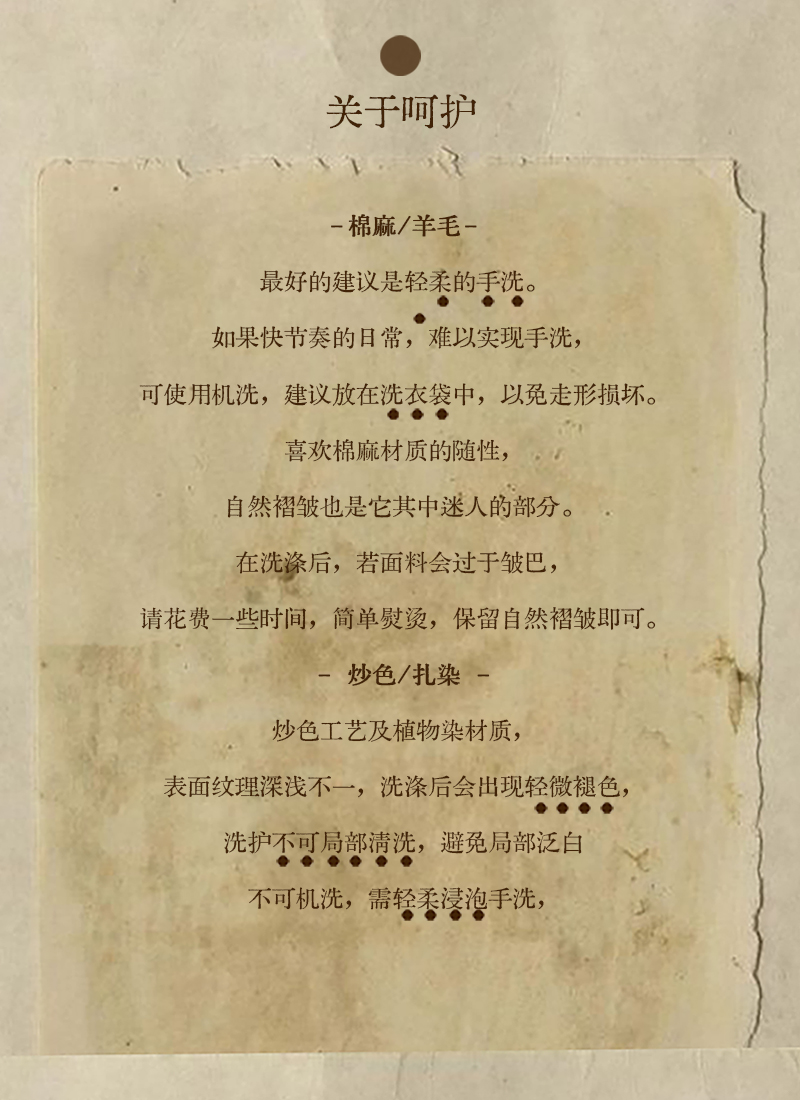 关于呵护
-棉麻/羊毛-
最好的建议是轻柔的手洗。
如果快节奏的日常，难以实现手洗，
可使用机洗，建议放在洗衣袋中，以免走形损坏。
喜欢棉麻材质的随性，
自然褶皱也是它其中迷人的部分。
在洗涤后，若面料会过于皱巴，
请花费一些时间，简单熨烫，保留自然褶皱即可。
- 炒色/扎染 -
炒色工艺及植物染材质，
表面纹理深浅不一，洗涤后会出现轻微褪色，
洗护不可局部清洗，避免局部泛白
不可机洗，需轻柔浸泡手洗，